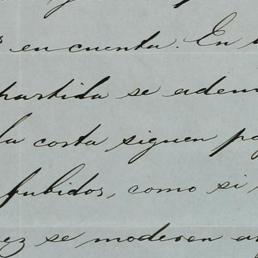 en cuenta. En
partida se adem
la costa siguen pa
subidos, como si
ez se moderen a